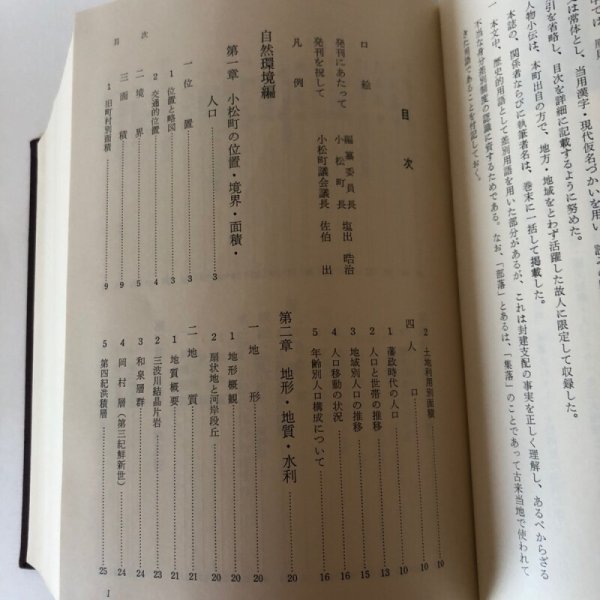 は常体とし、当用漢字・現代仮名づかいを用い、
引を省略し、目次を詳細に記載するように努めた。
人物小伝は、本町出目の方で、地方・地域をとわず活躍した故人に限定して収録した。
本誌の、関係者ならびに執筆者名は、巻末に一括して掲載した。
一 本文中、歴史的用語として差別用語を用いた部分があるが、これは封建支配の事実を正しく理解し、あるべからざる
不当な身分差別制度の認識に資するためである。なお、「部落」とあるは、「集落」のことであって古来当地で使われて
きた用語であることを付記しておく。
目次
口絵
発刊にあたって 編纂委員長
発刊を祝して 小松町長 塩出皓治
凡例 小松町議会議長 佐伯出
自然環境編
第一章 小松町の位置・境界・面積・
人口……3
一 位置……3
1 位置と略図……3
2 交通的位置……4
二 境界……5
三 面積……9
1 旧町村別面積……9
2 土地利用別面積……10
四 人口……10
1 藩政時代の人口……10
2 人口と世帯の推移……13
3 地域別人口の推移……15
4 人口移動の状況……16
5 年齢別人口構成について……16
第二章 地形・地質・水利……20
一 地形……20
1 地形概観……20
2 扇状地と河岸段丘……21
二 地質……21
1 地質概要……21
2 三波川結晶片岩……23
3 和泉層群……24
4 岡村層(第三紀鮮新世)……24
5 第四紀洪積層……25
目次
1